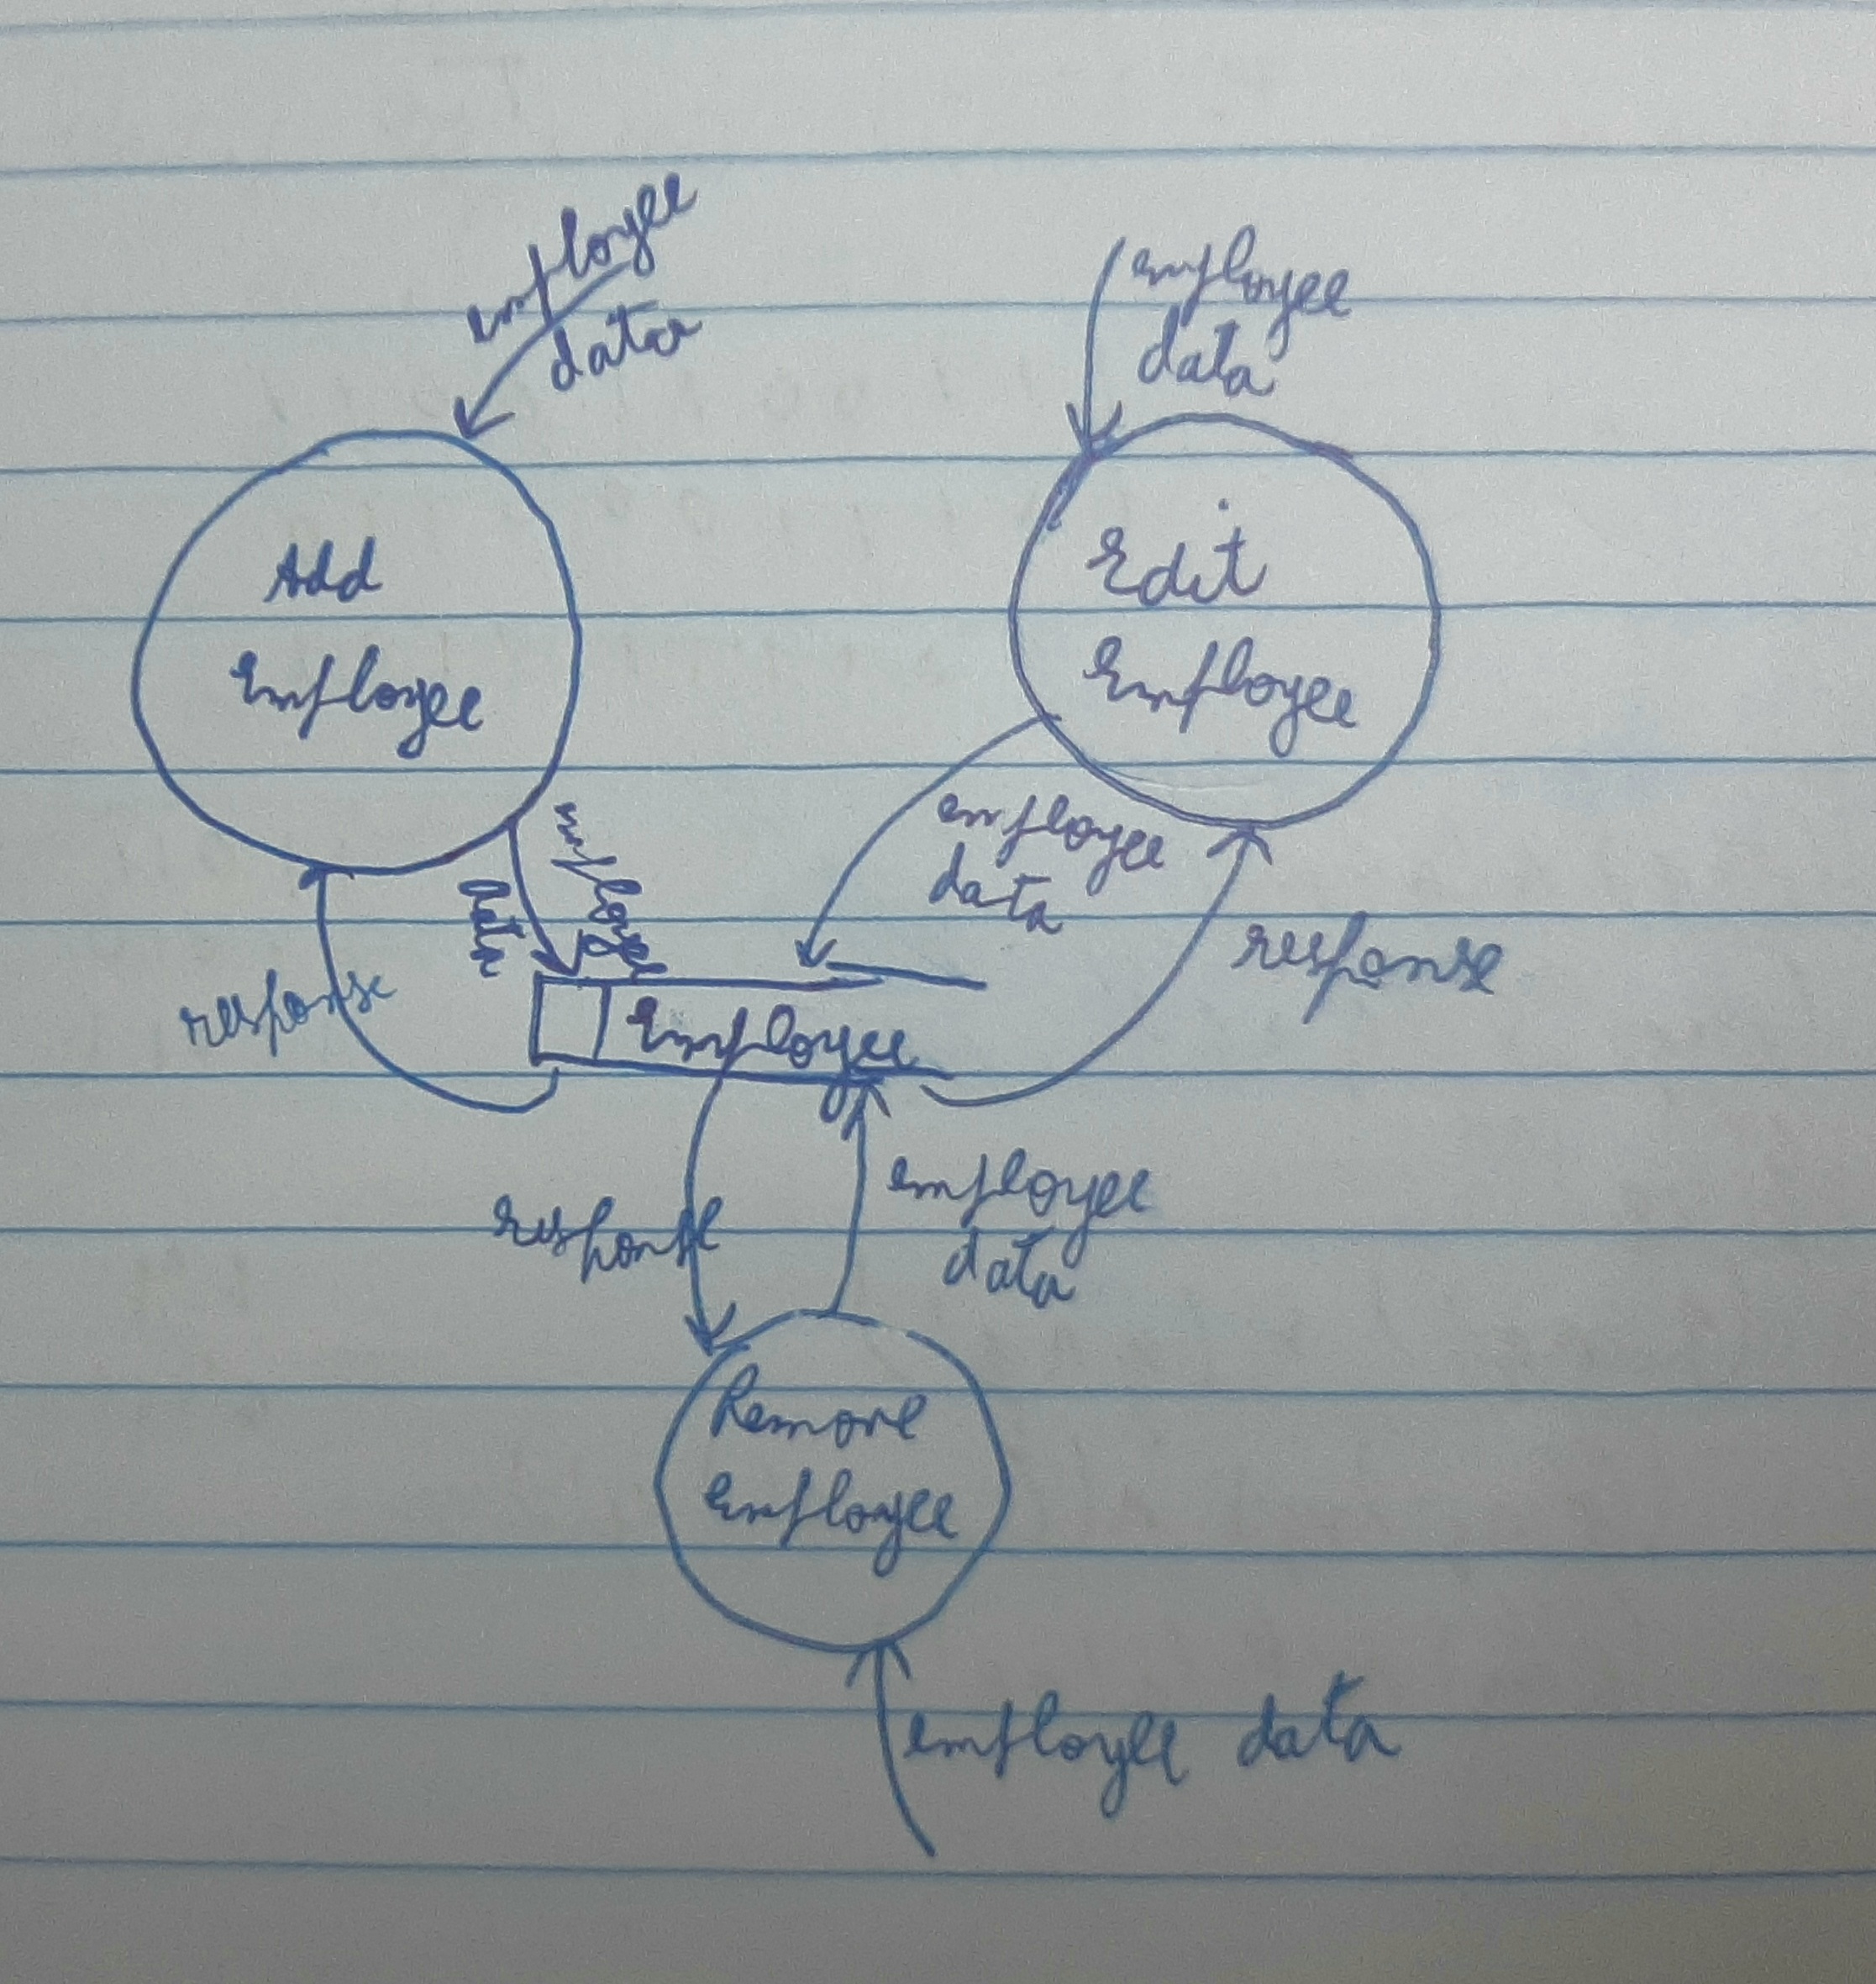 employee
data
employee
data
Add
Employee
Edit
Employee
employee
data
employee
data
response
response
Employee
response
employee
data
Remove
Employee
employee data